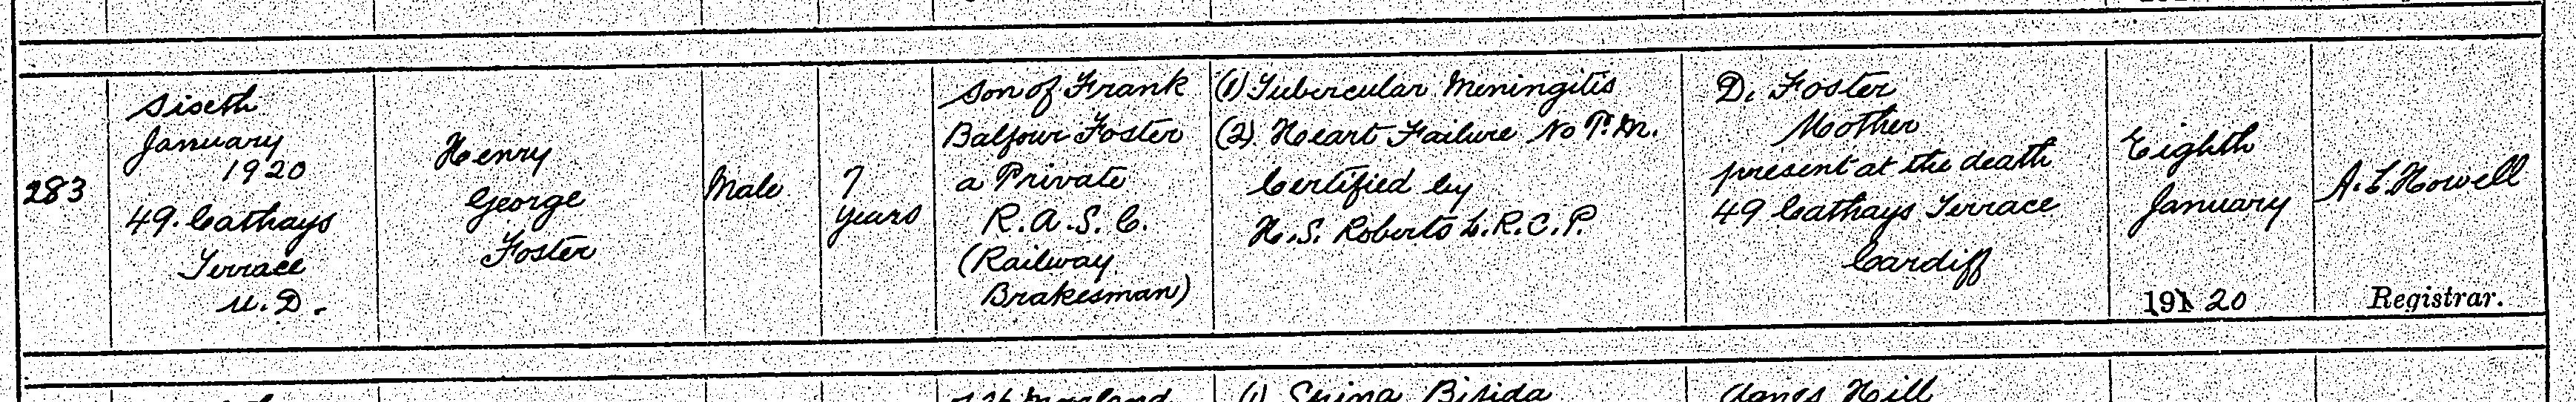 283
Sixth
January
1920
49. Cathays
Terrace
U.D.
Henry
George
Foster
Male
7
years
Son of Frank
Balfour Foster
a Private
R.A.S.C.
(Railway
Brakesman)
(1) Tubercular Meningitis
(2) Heart Failure No P.M.
Certified by
H.S. Roberts L.R.C.P.
D. Foster
Mother
present at the death
49 Cathays Terrace
Cardiff
Eighth
January
191 20
A.L. Howell
Registrar.
(1) Spina Bifida
Agnes Hill